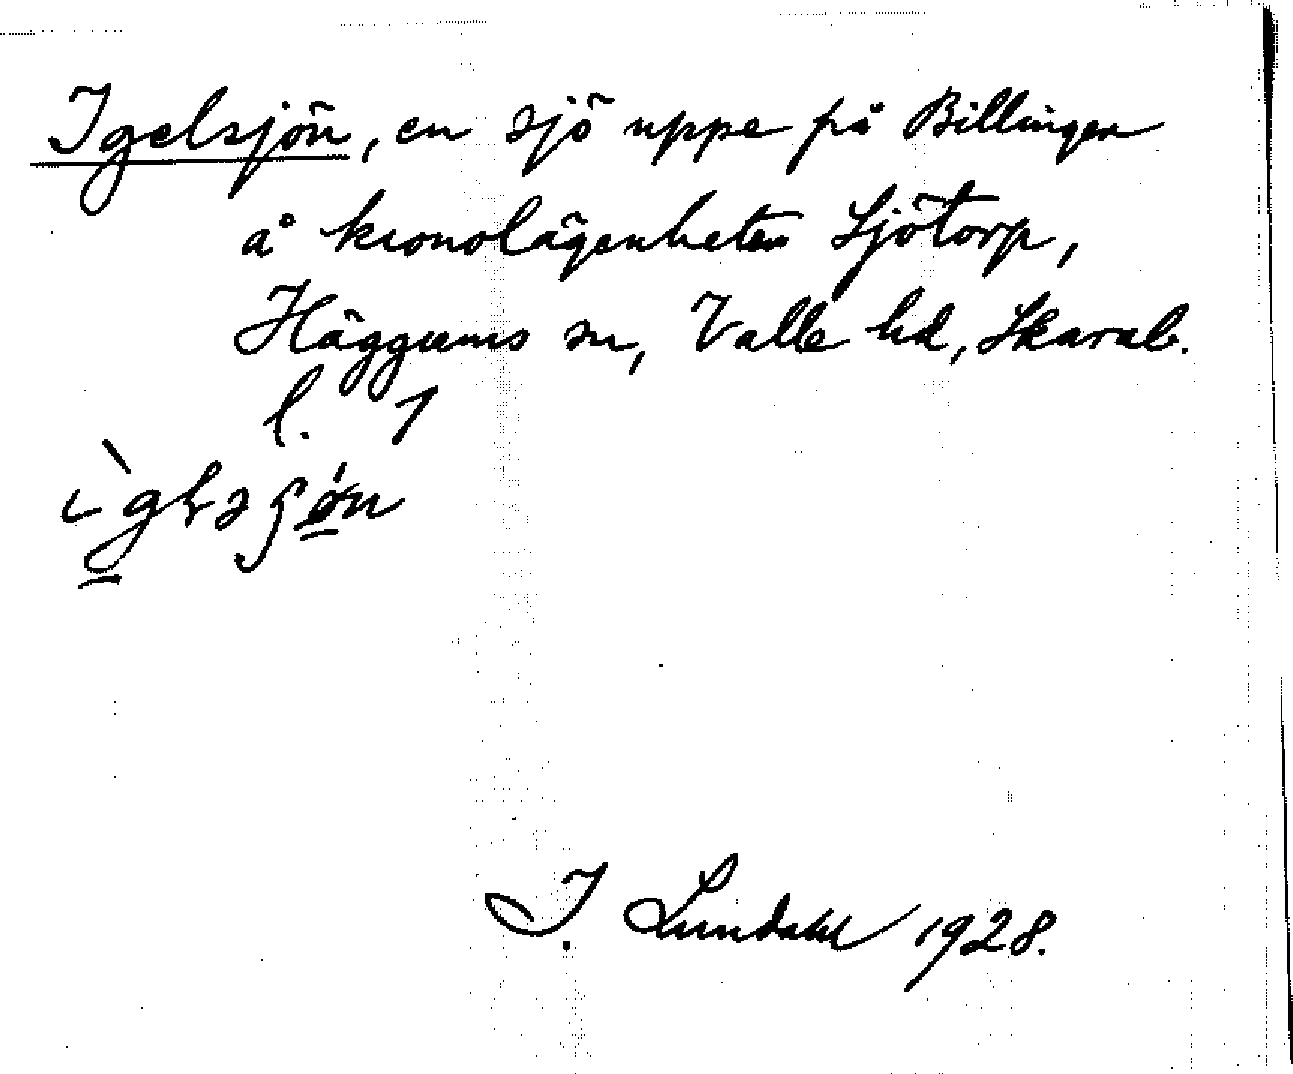 Igelsjön, en sjö uppe på Billingen
å kronolägenheten Sjötorp,
Häggums sn, Valle hd, Skarab.
l. 1
J. Lundahl 1928.